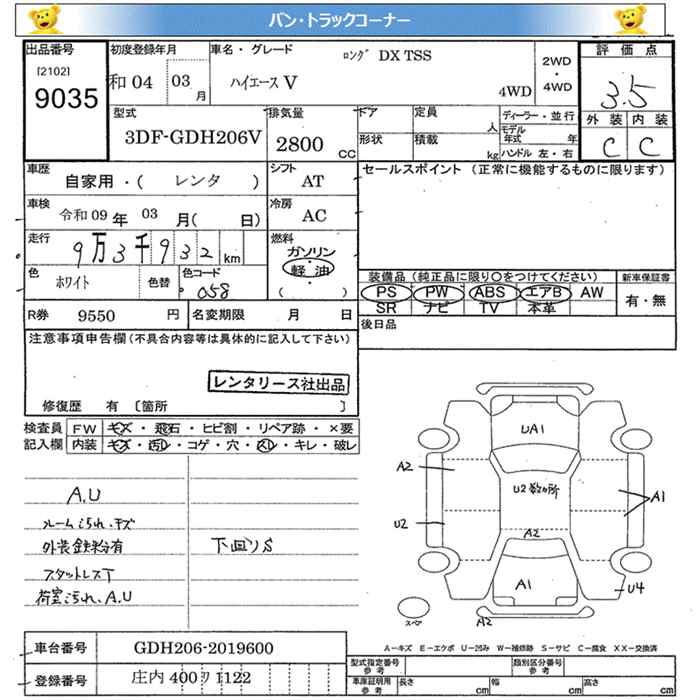 バン・トラックコーナー
出品番号
[2102]
9035
初度登録年月
和04 03 月
車名・グレード
ハイエース V ロングDX TSS
4WD
2WD
・
4WD
評価点
3.5
外装 内装
C C
型式
3DF-GDH206V
排気量
2800 CC
ドア
定員 人
ディーラー・並行
モデル
年式 年
形状
積載 kg
ハンドル 左・右
車歴
自家用・( レンタ )
シフト
AT
セールスポイント (正常に機能するものに限ります)
車検
令和09 年 03 月( 日)
冷房
AC
走行
9万3千932 km
燃料
ガソリン
・
軽油
( )
色
ホワイト
色替
色コード
058
装備品 (純正品に限り〇をつけてください)
新車保証書
PS PW ABS エアB AW
SR ナビ TV 本革
有・無
R券 9550 円
名変期限 月 日
後日品
注意事項申告欄(不具合内容等は具体的に記入して下さい)
レンタリース社出品
修復歴 有 〔箇所 〕
検査員 FW キズ・飛石・ヒビ割・リペア跡・×要
記入欄 内装 キズ・汚レ・コゲ・穴・スレ・キレ・破レ
A.U
ルーム汚れ、キズ
外装鉄粉有
スタットレスT
荷室汚れ、A.U
下回りS
UA1
A2
U2数ヵ所
A1
U2
A2
A1
U4
スペア
A2
A－キズ E－エクボ U－凹み W－補修跡 S－サビ C－腐食 XX－交換済
車台番号 GDH206-2019600
登録番号 庄内 400 ワ 1122
型式指定番号
参考
類別区分番号
参考
車庫証明用
参考
長さ cm 幅 cm 高さ cm